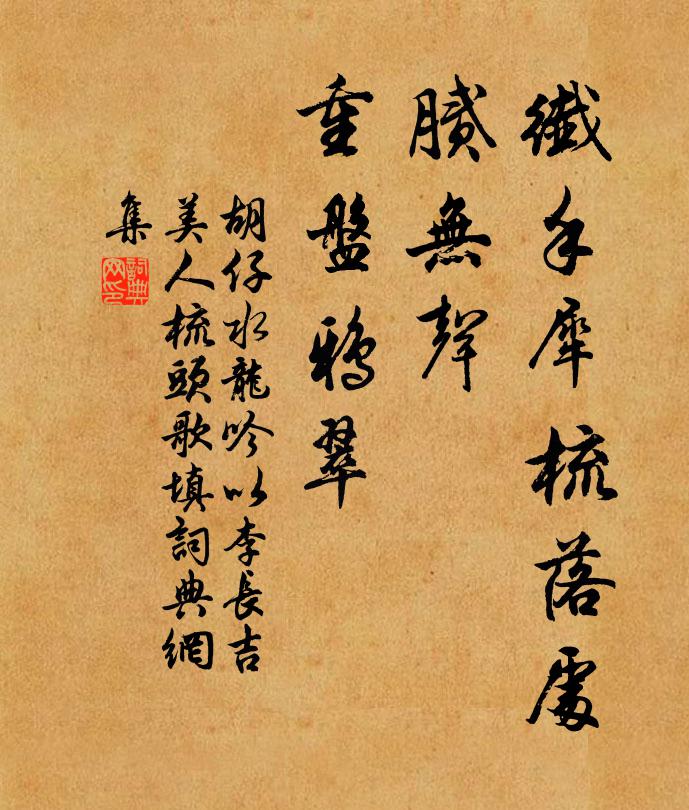 纖手犀梳落處
膩無聲
重盤鴉翠
胡仔水龍吟以李長吉
美人梳頭歌填詞典網
集
詞典
网印